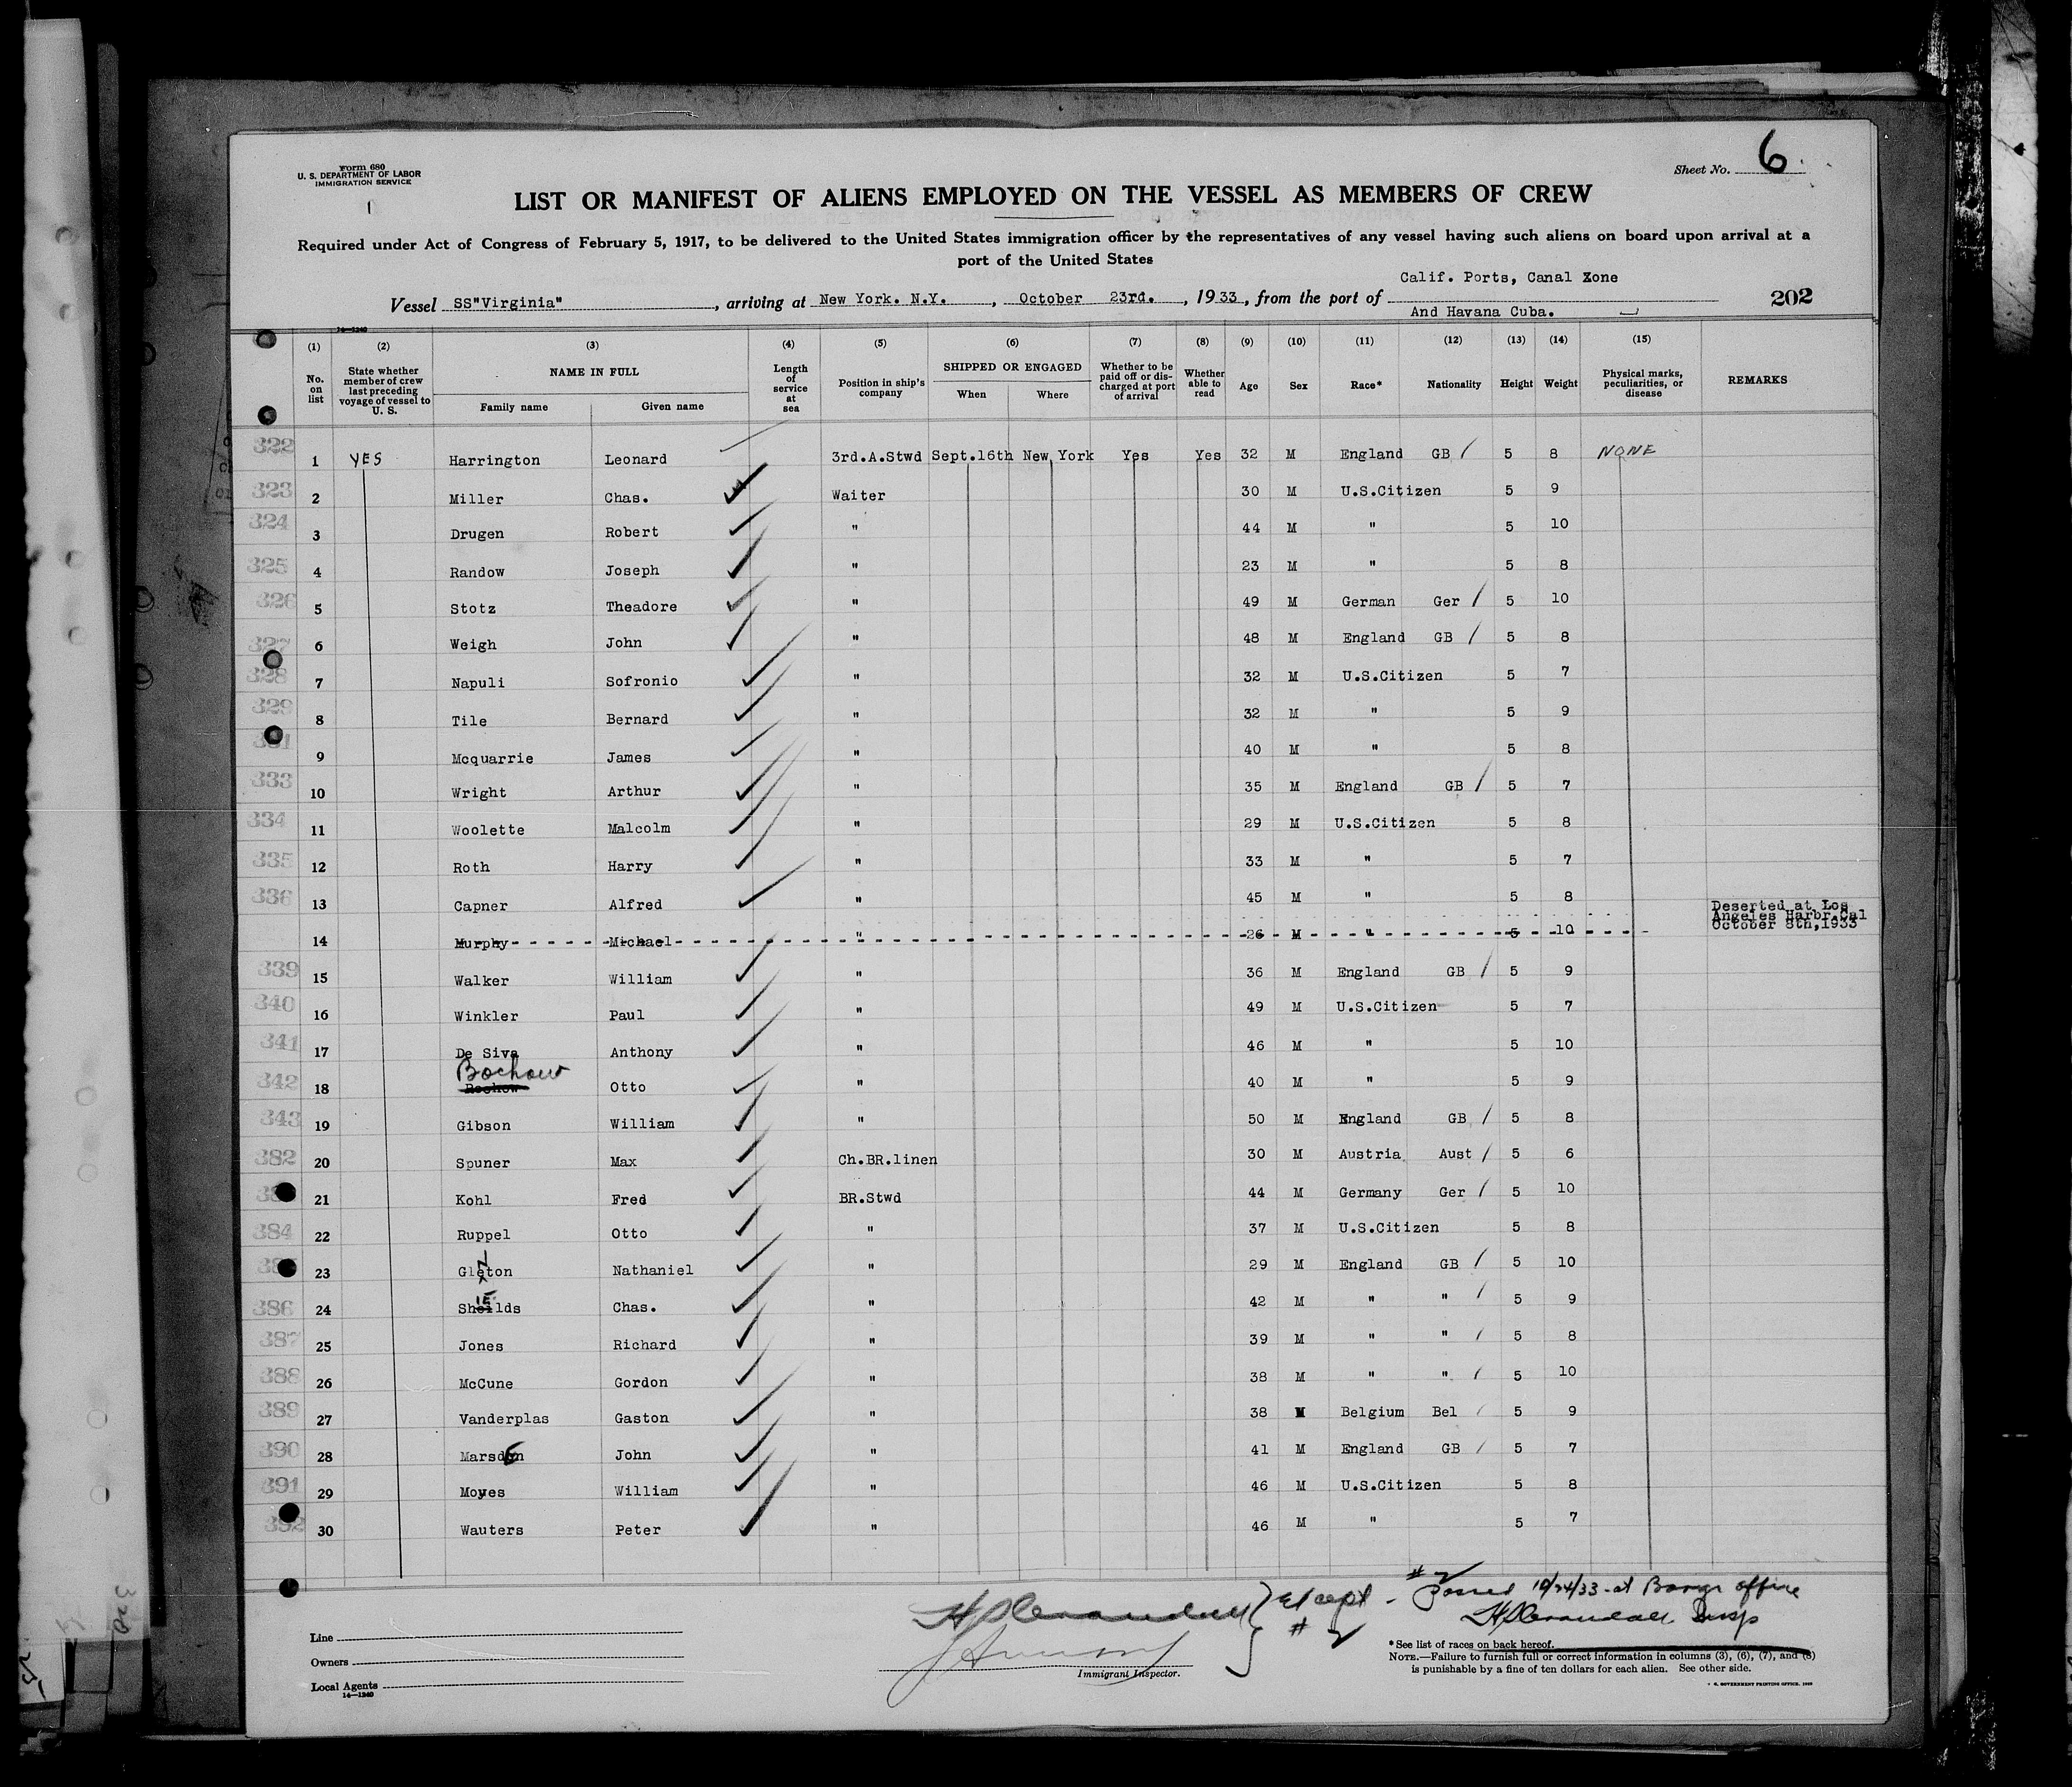 Form 680
U. S. DEPARTMENT OF LABOR
IMMIGRATION SERVICE
Sheet No. 6
LIST OR MANIFEST OF ALIENS EMPLOYED ON THE VESSEL AS MEMBERS OF CREW
Required under Act of Congress of February 5, 1917, to be delivered to the United States immigration officer by the representatives of any vessel having such aliens on board upon arrival at a
port of the United States
Calif. Ports, Canal Zone
Vessel SS"Virginia", arriving at New York. N.Y., October 23rd., 1933, from the port of
And Havana Cuba.
202
14—1240
(1) (2) (3) (4) (5) (6) (7) (8) (9) (10) (11) (12) (13) (14) (15)
No. on list State whether member of crew last preceding voyage of vessel to U. S. NAME IN FULL Family name Given name Length of service at sea Position in ship's company SHIPPED OR ENGAGED When Where Whether to be paid off or discharged at port of arrival Whether able to read Age Sex Race* Nationality Height Weight Physical marks, peculiarities, or disease REMARKS
322 1 YES Harrington Leonard 3rd.A.Stwd Sept.16th New York Yes Yes 32 M England GB 5 8 NONE
323 2 Miller Chas. Waiter 30 M U.S.Citizen 5 9
324 3 Drugen Robert " 44 M " 5 10
325 4 Randow Joseph " 23 M " 5 8
326 5 Stotz Theadore " 49 M German Ger 5 10
327 6 Weigh John " 48 M England GB 5 8
328 7 Napuli Sofronio " 32 M U.S.Citizen 5 7
329 8 Tile Bernard " 32 M " 5 9
9 Mcquarrie James " 40 M " 5 8
333 10 Wright Arthur " 35 M England GB 5 7
334 11 Woolette Malcolm " 29 M U.S.Citizen 5 8
335 12 Roth Harry " 33 M " 5 7
336 13 Capner Alfred " 45 M " 5 8
14 Murphy Michael " 26 M " 5 10 Deserted at Los Angeles Harbr.Cal October 8th,1933
339 15 Walker William " 36 M England GB 5 9
340 16 Winkler Paul " 49 M U.S.Citizen 5 7
341 17 De Siva Anthony " 46 M " 5 10
342 18 Bochow Otto " 40 M " 5 9
343 19 Gibson William " 50 M England GB 5 8
382 20 Spuner Max Ch.BR.linen 30 M Austria Aust 5 6
21 Kohl Fred BR.Stwd 44 M Germany Ger 5 10
384 22 Ruppel Otto " 37 M U.S.Citizen 5 8
23 Gleton Nathaniel " 29 M England GB 5 10
386 24 Shields Chas. " 42 M " " 5 9
387 25 Jones Richard " 39 M " " 5 8
388 26 McCune Gordon " 38 M " " 5 10
389 27 Vanderplas Gaston " 38 M Belgium Bel 5 9
390 28 Marsden John " 41 M England GB 5 7
391 29 Moyes William " 46 M U.S.Citizen 5 8
392 30 Wauters Peter " 46 M " 5 7
Except # 2
# 2 Passed 10/24/33 at Barge office
Line
Owners
Local Agents
14—1240
Immigrant Inspector.
*See list of races on back hereof.
NOTE.—Failure to furnish full or correct information in columns (3), (6), (7), and (8)
is punishable by a fine of ten dollars for each alien. See other side.
U. S. GOVERNMENT PRINTING OFFICE